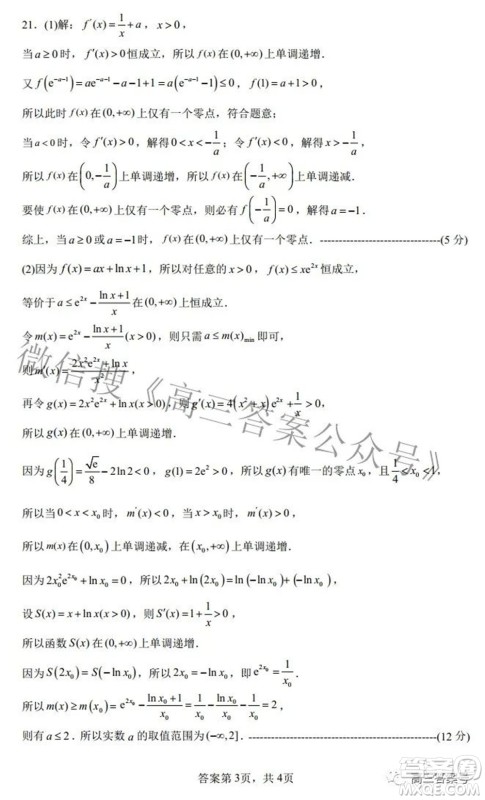 21．(1)解：f′(x)=1/x+a，x>0，
当a≥0时，f′(x)>0恒成立，所以f(x)在(0,+∞)上单调递增．
又f(e^(-a-1))=ae^(-a-1)-a-1+1=a(e^(-a-1)-1)≤0，f(1)=a+1>0，
所以此时f(x)在(0,+∞)上仅有一个零点，符合题意；
当a<0时，令f′(x)>0，解得0<x<-1/a；令f′(x)<0，解得x>-1/a．
所以f(x)在(0,-1/a)上单调递增，所以f(x)在(-1/a,+∞)上单调递减．
要使f(x)在(0,+∞)上仅有一个零点，则必有f(-1/a)=0，解得a=-1．
综上，当a≥0或a=-1时，f(x)在(0,+∞)上仅有一个零点．-----------------------------(5 分)
(2)因为f(x)=ax+ln x+1，所以对任意的x>0，f(x)≤xe^(2x)恒成立，
等价于a≤e^(2x)-(ln x+1)/x在(0,+∞)上恒成立．
令m(x)=e^(2x)-(ln x+1)/x(x>0)，则只需a≤m(x)min即可，
则m′(x)=(2x²e^(2x)+ln x)/x²，
再令g(x)=2x²e^(2x)+ln x(x>0)，则g′(x)=4(x²+x)e^(2x)+1/x>0，
所以g(x)在(0,+∞)上单调递增．
因为g(1/4)=√e/8-2ln2<0，g(1)=2e²>0，所以g(x)有唯一的零点x₀，且1/4<x₀<1，
所以当0<x<x₀时，m′(x)<0，当x>x₀时，m′(x)>0，
所以m(x)在(0,x₀)上单调递减，在(x₀,+∞)上单调递增．
因为2x₀²e^(2x₀)+ln x₀=0，所以2x₀+ln(2x₀)=ln(-ln x₀)+(-ln x₀)，
设S(x)=x+ln x(x>0)，则S′(x)=1+1/x>0，
所以函数S(x)在(0,+∞)上单调递增．
因为S(2x₀)=S(-ln x₀)，所以2x₀=-ln x₀，即e^(2x₀)=1/x₀．
所以m(x)≥m(x₀)=e^(2x₀)-(ln x₀+1)/x₀=1/x₀-ln x₀/x₀-1/x₀=2，
则有a≤2．所以实数a的取值范围为(-∞,2]．-----------------------------(12 分)
答案第3页，共4页
微信搜《高三答案公众号》
高三答案号